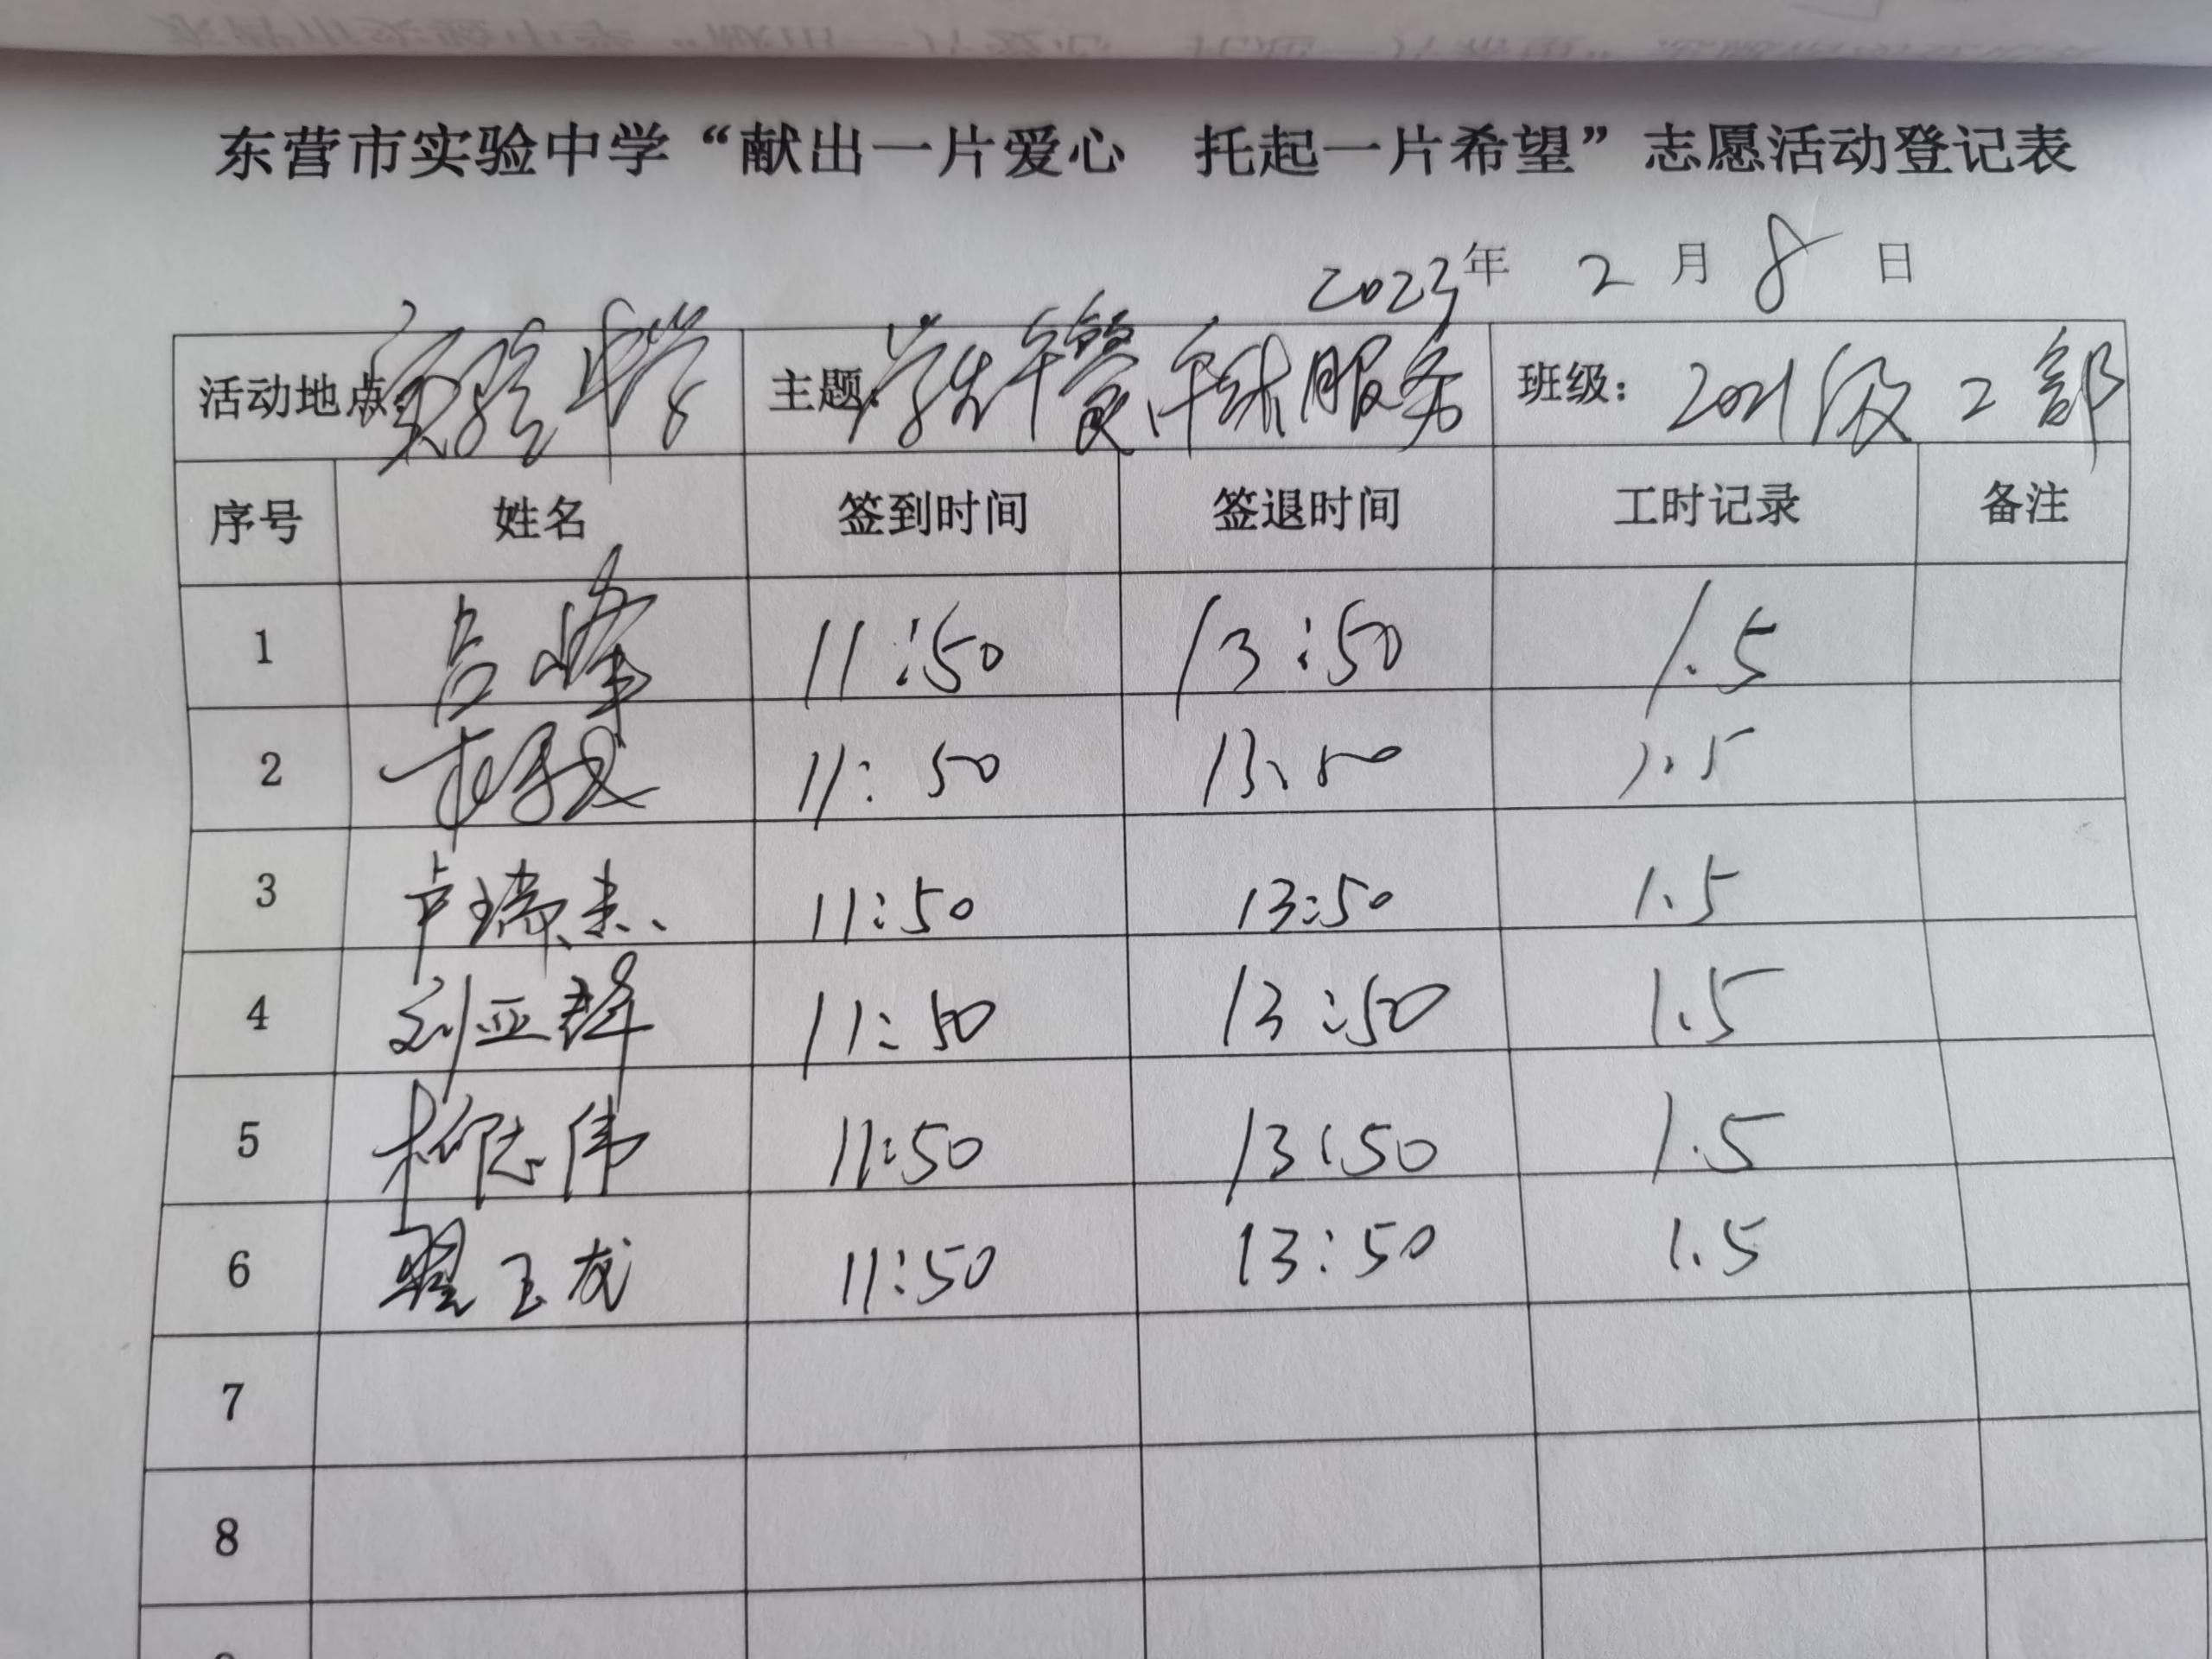 东营市实验中学“献出一片爱心 托起一片希望”志愿活动登记表
2023年 2 月 8 日
活动地点：实验中学 主题：学生午餐、午休服务 班级：2021级2部
序号 姓名 签到时间 签退时间 工时记录 备注
1 吕峰 11:50 13:50 1.5
2 11:50 13:50 1.5
3 卢瑞杰 11:50 13:50 1.5
4 刘亚群 11:50 13:50 1.5
5 柳志伟 11:50 13:50 1.5
6 翟玉龙 11:50 13:50 1.5
7
8